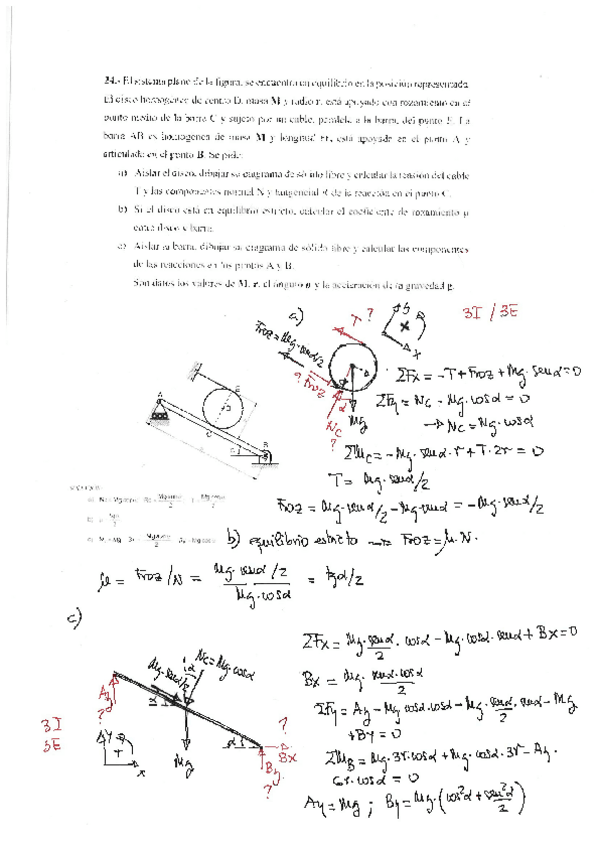 24.- El sistema plano de la figura, se encuentra en equilibrio en la posición representada.
El disco homogéneo de centro D, masa M y radio r, está apoyado con rozamiento en el
punto medio de la barra C y sujeto por un cable, paralelo a la barra, del punto E. La
barra AB es homogénea de masa M y longitud 6r, está apoyada en el punto A y
articulada en el punto B. Se pide:
a) Aislar el disco, dibujar su diagrama de sólido libre y calcular la tensión del cable
T y las componentes normal N y tangencial de la reacción en el punto C.
b) Si el disco está en equilibrio estricto, calcular el coeficiente de rozamiento μ
entre disco y barra.
c) Aislar la barra, dibujar su diagrama de sólido libre y calcular las componentes
de las reacciones en los puntos A y B.
Son datos los valores de M, r, el ángulo α y la aceleración de la gravedad g.
a)
T ?
3I / 3E
y
x
Froz = Mg·senα/2
? Froz
D
α
Nc
?
Mg
ΣFx = -T + Froz + Mg·senα = 0
ΣFy = Nc - Mg·cosα = 0
→ Nc = Mg·cosα
ΣMc = -Mg·senα·r + T·2r = 0
T = Mg·senα/2
Froz = Mg·senα/2 - Mg·senα = -Mg·senα/2
A
E
D
C
B
b) equilibrio estricto → Froz = μ·N.
μ = Froz/N = Mg·senα/2 / Mg·cosα = tgα/2
c)
Mg·senα/2
α
Nc = Mg·cosα
Ay
?
α
α
?
Bx
By
?
Mg
3I
3E
y
x
ΣFx = Mg·senα/2·cosα - Mg·cosα·senα + Bx = 0
Bx = Mg·senα·cosα/2
ΣFy = Ay - Mg·cosα·cosα - Mg·senα/2·senα - Mg
+ By = 0
ΣMB = Mg·3r·cosα + Mg·cosα·3r - Ay·
6r·cosα = 0
Ay = Mg ; By = Mg·(cos²α + sen²α/2)